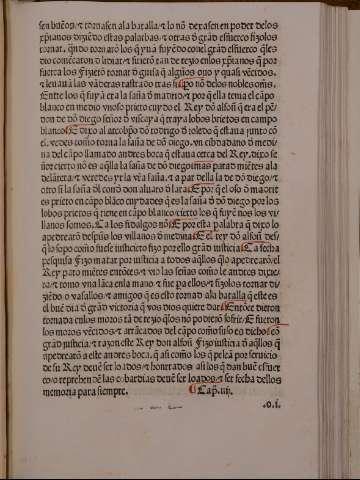 sen buenos. & tornasen ala batalla/ & lo nō dexasen en poder delos
xp̄ianos diziēdo estas palabras/ & otras d̄ grād esfuerço fizolos
tornar. q̄ndo tornarō los q̄ yua fuyēdo conel grād esfuerço q̄les
dio començaron d̄ lidiar/ & fuerō tan de rezio enlos xp̄ianos q̄ por
fuerça los fizierō tornar d̄ guisa q̄ algūos ouo y quasi vēcidos.
& leuauā las vāderas rastrādo tras si po nō delos nobles omēs.
Entre los q̄ fuyā era la saña d̄ madrid/ & por q̄ ella tenia el cāpo
blanco en medio vn oso prieto cuydo el Rey dō alfon̄ q̄ era el pē
don de dō diego señor d̄ viscaya q̄ traya lobos prietos en campo
blanco/ E dixo al arçobpō dō rodrigo d̄ toledo q̄ estaua junto cō
el. vedes como torna la saña de dō diego. vn cibdadano d̄ medi
na del cāpo llamado andres boca q̄ estaua cerca del Rey. dixo se
ñor cierto nō es aq̄lla la saña de dō diego/ mas parad miētes ala
delātera/ & veredes y la v̄ea saña. & a par della la de dō diego/ &
otro si la saña dl conde don aluaro d̄ lara/ E por q̄ el oso d̄ madrit
es prieto en cāpo blāco cuydades q̄ es la saña d̄ dō diego por los
lobos prietos q̄ tiene en cāpo blanco/ cierto los q̄ fuyē nos los vi
llanos somos. Ca los fidalgos nō/ E por esta palabra q̄ dixo lo
apedrearō despūs los villanos d̄ medina/ E el rey dō alfon̄ des
q̄ lo sopo como fuese iusticiero fizo por ello grād iusticia/ Ca fecha
pesquisa fizo matar por iusticia a todos aq̄llos q̄lo apedrearō. el
Rey paro miētes entōces/ & vio las señas como le andres dixie
ra/ & tomo vna lāca enla mano/ & fue pa ellos/ & fizolos tornar di
ziēdo o vasallos/ & amigos q̄ es esto tornad ala batalla q̄ este es
el bue dia d̄ grād victoria q̄ vos dios quiere dar/ Entōce dieron
tornada enlos moros tā de rezio q̄los nō podierō sofrir/ E fueron
los moros vēcidos/ & arrācados del cāpo como suso es dicho/ cō
grād iusticia/ & razon este Rey don alfon̄ fizo iusticia d̄ aq̄llos q̄
apedrearō a este andres boca. q̄ asi como los q̄ peleā por seruicio
de su Rey deuē ser loados/ & honrrados asi los q̄ dan bue esfuer
ço/ & reprehendē las cobardias deuē ser loados/ & ser fecha dellos
memoria para siempre. Cap̄.
.o.i.